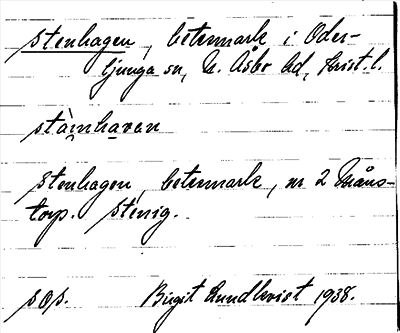 Stenhagen, betesmark i Oder-
ljunga sn, N. Åsbo hd, Krist. l.
stàinhavan
Stenhagen, betesmark, nr 2 Måns-
torp. Stenig.
sOs. Birgit Lundkvist 1938.